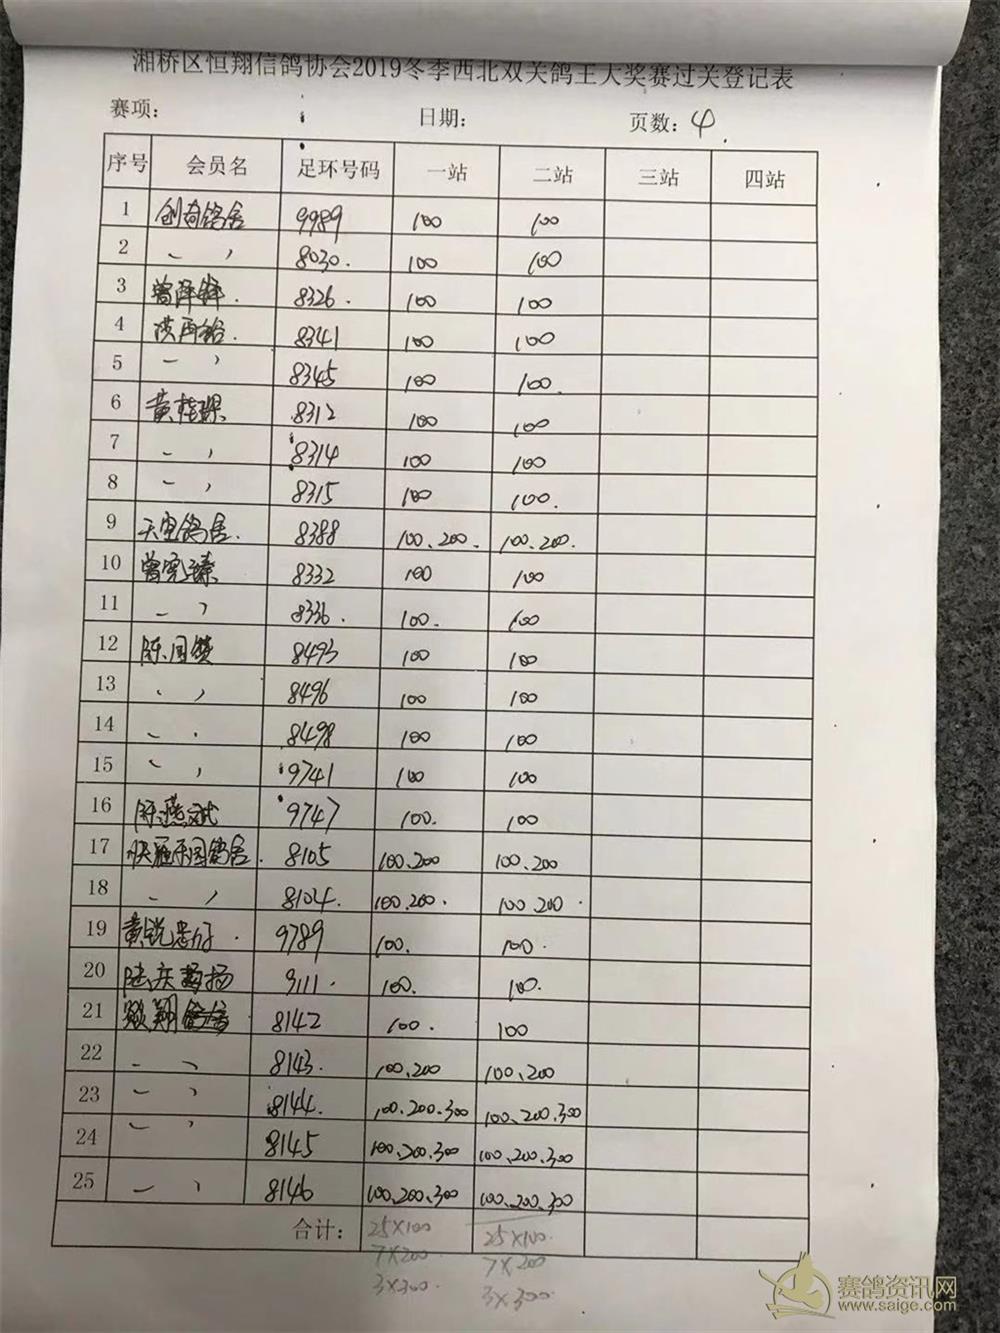 湘桥区恒翔信鸽协会2019冬季西北双关鸽王大奖赛过关登记表
赛项： 日期： 页数：4
序号 会员名 足环号码 一站 二站 三站 四站
1 创奇鸽舍 9989 100 100
2 〃 8030. 100 100
3 曾泽锋. 8326. 100 100
4 8341 100 100
5 〃 8345 100 100.
6 黄桂 8312 100 100
7 〃 8314 100 100
8 〃 8315 100 100.
9 天宝鸽舍. 8388 100.200. 100.200.
10 曾宪臻 8332 100 100
11 〃 8336. 100. 100
12 陈国 8493 100 100
13 〃 8496 100 100
14 〃 8498 100 100
15 〃 9741 100 100
16 陈燕斌 9747 100. 100
17 鸽舍. 8105 100.200 100.200
18 〃 8104. 100.200. 100.200.
19 黄锐 9789 100. 100.
20 陆庆扬 9111. 100. 100.
21 翔鸽舍 8142 100. 100
22 〃 8143. 100.200 100.200
23 〃 8144. 100.200.300 100.200.300
24 〃 8145 100.200.300 100.200.300
25 〃 8146 100.200.300 100.200.300
合计： 25×100 25×100.
7×200 7×200
3×300 3×300
赛鸽资讯网
www.saige.com